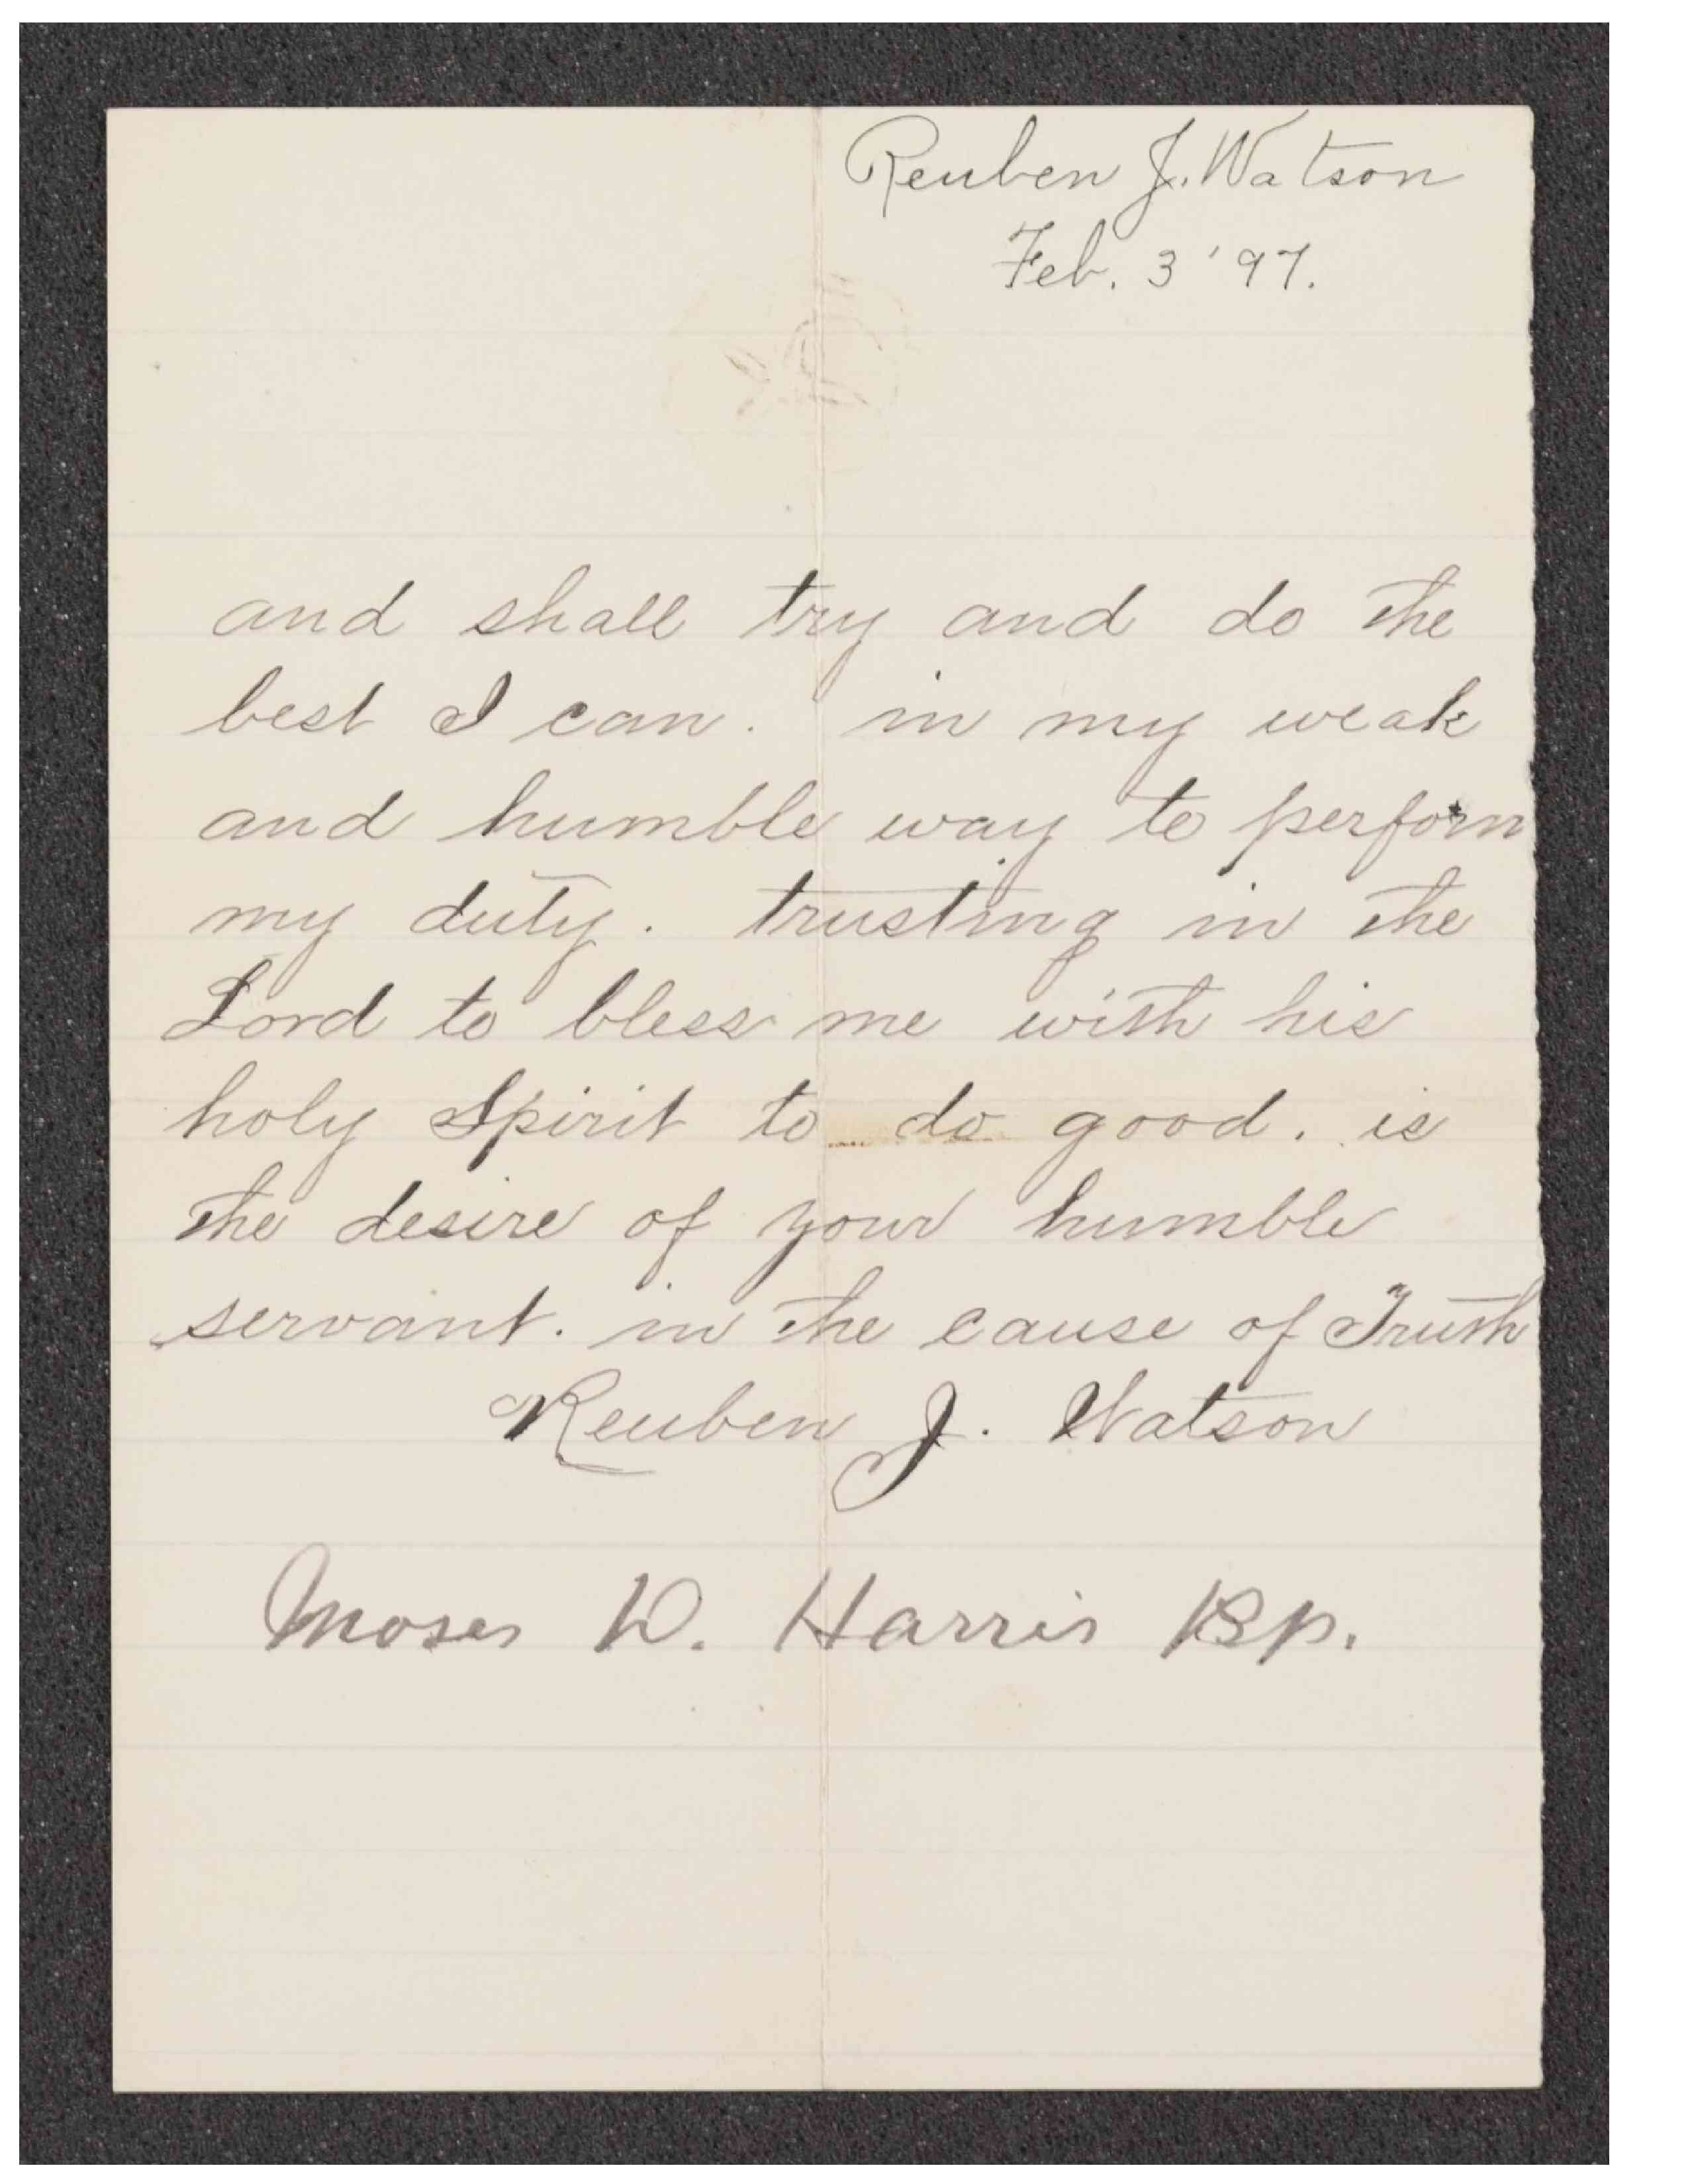 Reuben J. Watson
Feb. 3 '97.
and shall try and do the
best I can. in my weak
and humble way to perform
my duty. trusting in the
Lord to bless me with his
holy Spirit to do good. is
the desire of your humble
servant. in the cause of Truth
Reuben J. Watson
Moses W. Harris Bp.